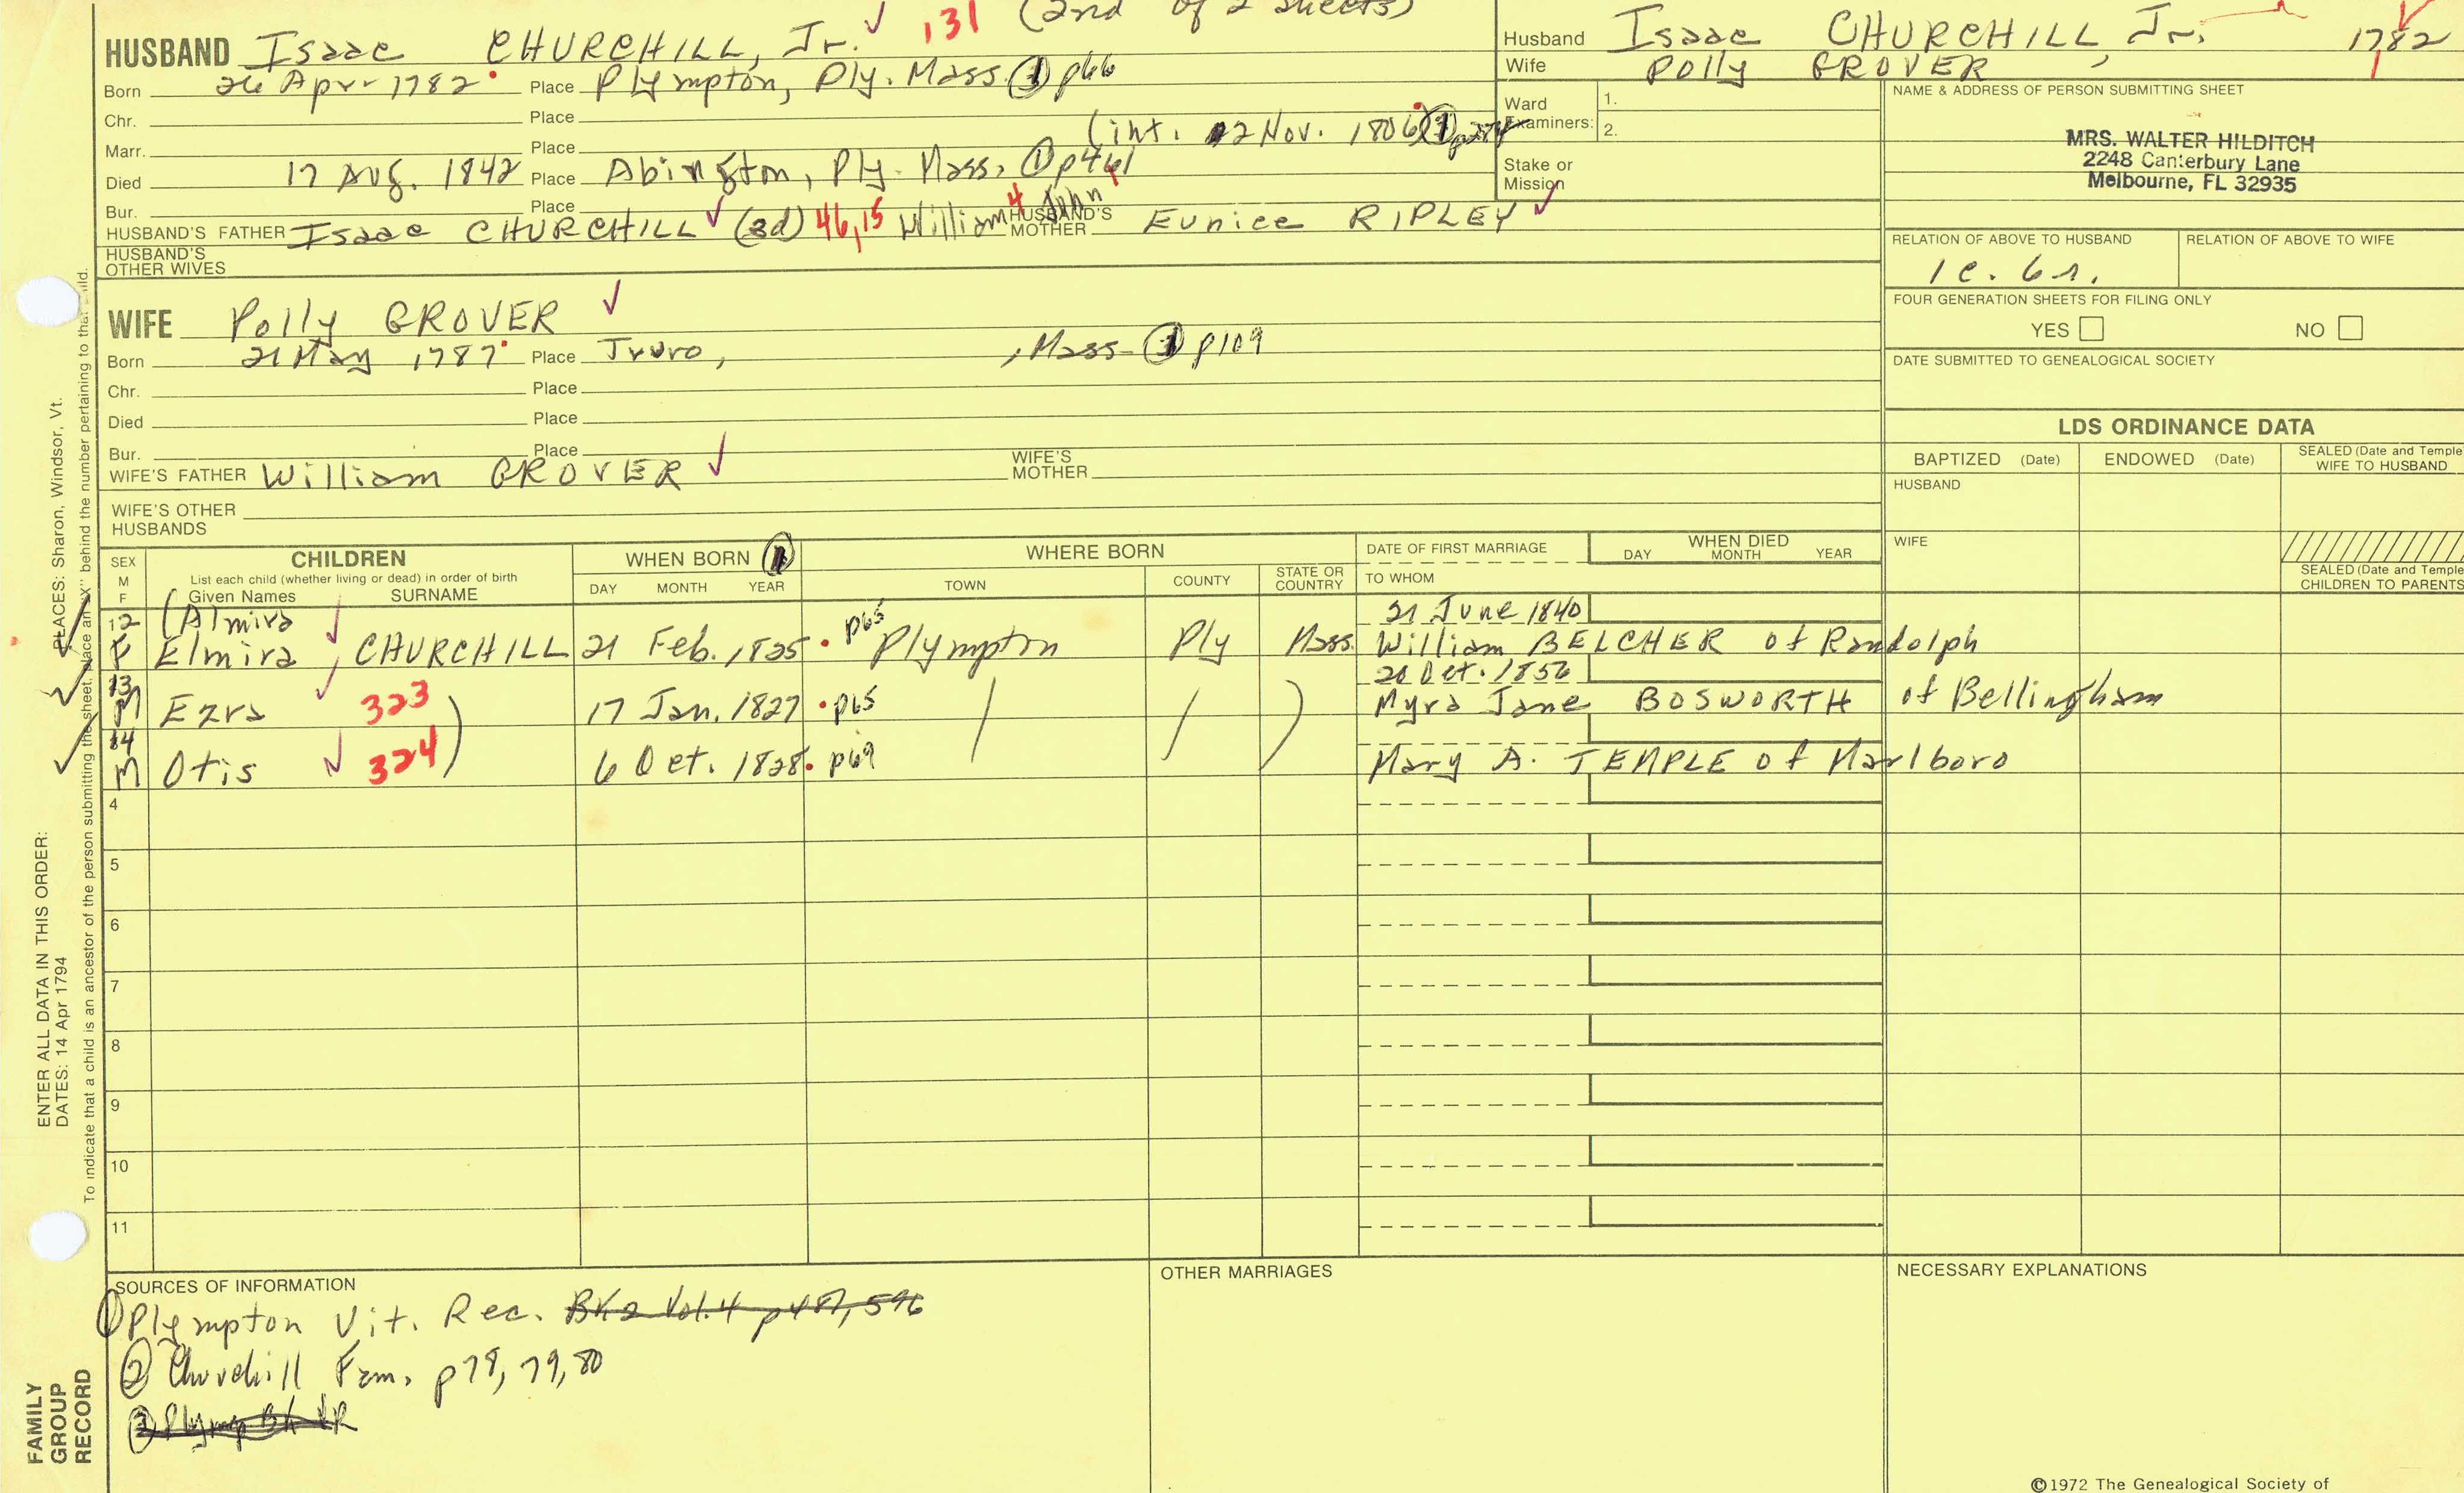 131 (2nd of 2 sheets)
HUSBAND Isaac CHURCHILL, Jr.
Born 26 Apr 1782 Place Plympton, Ply. Mass. ① p66
Chr. Place
Marr. Place (int. 22 Nov. 1806
Died 17 Aug. 1842 Place Abington, Ply. Mass, ① p461
Bur. Place
HUSBAND'S FATHER Isaac CHURCHILL (3d) 46,15 William4 John1 HUSBAND'S MOTHER Eunice RIPLEY
HUSBAND'S OTHER WIVES
WIFE Polly GROVER
Born 21 May 1787 Place Truro, , Mass ① p109
Chr. Place
Died Place
Bur. Place
WIFE'S FATHER William GROVER WIFE'S MOTHER
WIFE'S OTHER HUSBANDS
Husband Isaac CHURCHILL, Jr. 1782
Wife Polly GROVER
Ward Examiners: 1.
2.
Stake or Mission
NAME & ADDRESS OF PERSON SUBMITTING SHEET
MRS. WALTER HILDITCH
2248 Canterbury Lane
Melbourne, FL 32935
RELATION OF ABOVE TO HUSBAND RELATION OF ABOVE TO WIFE
1c. 6r.
FOUR GENERATION SHEETS FOR FILING ONLY
YES NO
DATE SUBMITTED TO GENEALOGICAL SOCIETY
LDS ORDINANCE DATA
BAPTIZED (Date) ENDOWED (Date) SEALED (Date and Temple
WIFE TO HUSBAND
HUSBAND
WIFE
SEALED (Date and Temple
CHILDREN TO PARENTS
SEX M F CHILDREN WHEN BORN WHERE BORN DATE OF FIRST MARRIAGE WHEN DIED
List each child (whether living or dead) in order of birth
Given Names SURNAME DAY MONTH YEAR TOWN COUNTY STATE OR COUNTRY TO WHOM DAY MONTH YEAR
12 (Almira 21 June 1840
F Elmira CHURCHILL 21 Feb. 1825 p65 Plympton Ply Mass. William BELCHER of Randolph
13 20 Oct. 1856
M Ezra 323 17 Jan. 1827 p65 Myra Jane BOSWORTH of Bellingham
14
M Otis 324 6 Oct. 1828 p69 Mary A. TEMPLE of Marlboro
4
5
6
7
8
9
10
11
SOURCES OF INFORMATION
① Plympton Vit. Rec. Bk 2 Vol. 4 p487, 596
② Churchill Fam. p78, 79, 80
OTHER MARRIAGES
NECESSARY EXPLANATIONS
©1972 The Genealogical Society of
ENTER ALL DATA IN THIS ORDER:
DATES: 14 Apr 1794
PLACES: Sharon, Windsor, Vt.
To indicate that a child is an ancestor of the person submitting the sheet, place an "X" behind the number pertaining to that child.
FAMILY
GROUP
RECORD